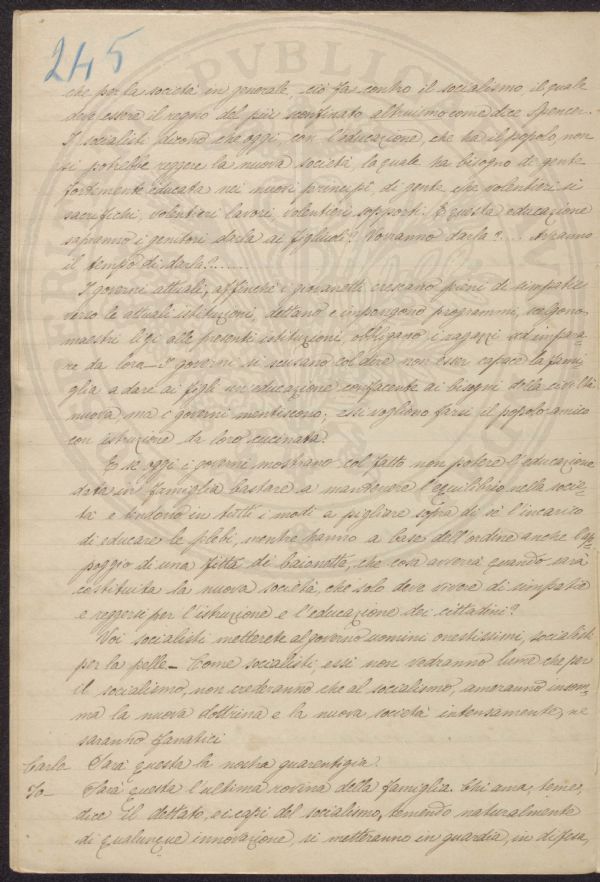 245
che per la società in generale, ciò fa contro il socialismo, il quale
deve essere il regno del più sconfinato altruismo come dice Spencer.
I socialisti dicono che oggi, con l'educazione, che ha il popolo, non
si potrebbe reggere la nuova società, la quale ha bisogno di gente
fortemente educata nei nuovi principi, di gente che volentieri si
sacrifichi, volentieri lavori, volentieri sopporti. E questa educazione
sapranno i genitori darla ai figliuoli? Vorranno darla?.... Avranno
il tempo di darla?......
I governi attuali, affinchè i giovanetti crescano pieni di simpatie
verso le attuali istituzioni, dettano e impongono programmi, scelgono
maestri ligi alle presenti istituzioni, obbligano i ragazzi ad impara=
re da loro — I governi si scusano col dire non esser capace la fami=
glia a dare ai figli un'educazione confacente ai bisogni della civiltà
nuova ma i governi mentiscono; essi vogliono farsi il popolo amico
con istruzione da loro cucinata.
E se oggi i governi mostrano col fatto non potere l'educazione
data in famiglia bastare a mantenere l'equilibrio nella socie=
tà e tendono in tutti i modi a pigliare sopra di sè l'incarico
di educare le plebi, mentre hanno a base dell'ordine anche l'ap=
poggio di una fitta di baionette, che cosa avverrà quando sarà
costituita la nuova società, che solo deve vivere di simpatie
e reggersi per l'istruzione e l'educazione dei cittadini?
Voi socialisti metterete al governo uomini onestissimi, socialisti
per la pelle — Come socialisti, essi non vedranno lume che per
il socialismo, non crederanno che al socialismo, ameranno insom=
ma la nuova dottrina e la nuova società intensamente, ne
saranno fanatici
Carlo — Sarà questa la nostra guarentigia.
Io — Sarà questa l'ultima rovina della famiglia. Chi ama, teme,
dice il dettato, e i capi del socialismo, temendo naturalmente
di qualunque innovazione, si metteranno in guardia, in difesa,